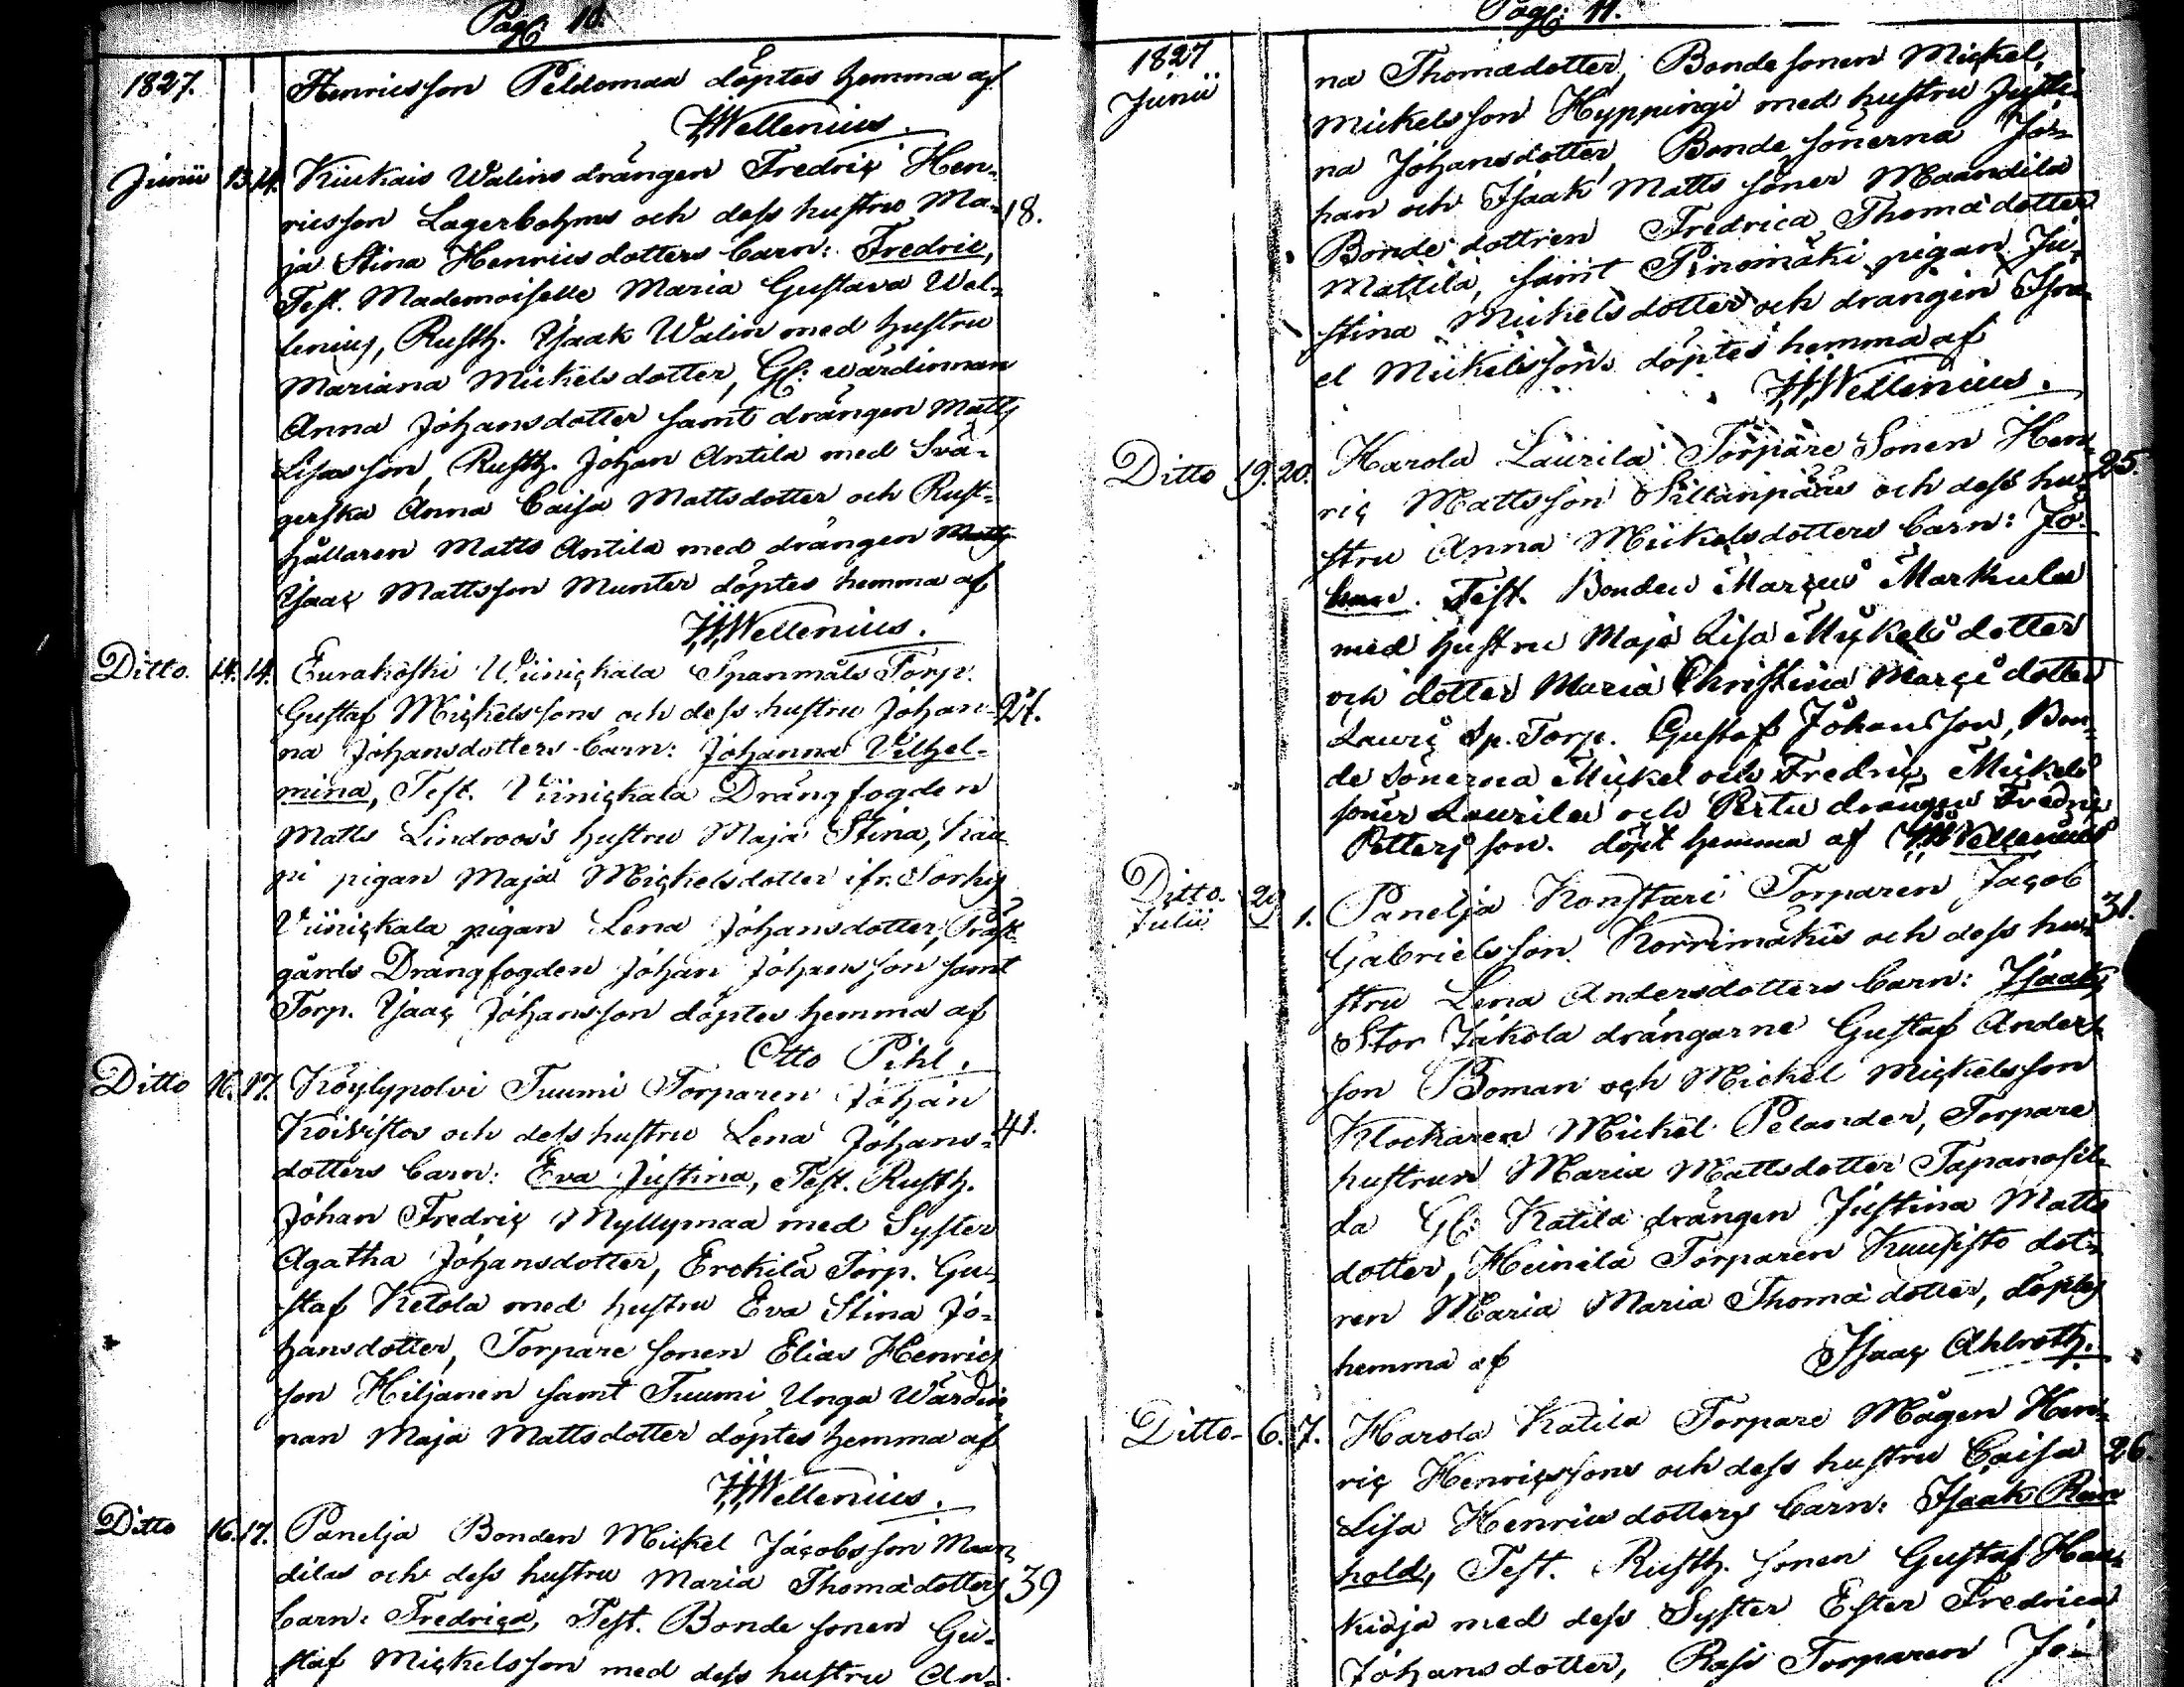 Pag: 10.
1827.
Henricsson Peldomaa döptes hemma af
HWellenius.
Junii 13 14. Kiukais Walins drängen Fredric Hen-
ricsson Lagerbohms och dess hustru Ma- 18.
ja Stina Henricsdotters barn: Fredric,
Test. Mademoiselle Maria Gustava Wel-
lenius, Rusth. Isaak Walin med hustru
Mariana Mickelsdotter, Gl: wärdinnan
Anna Johansdotter samt drängen Matts
Lisasson, Rusth. Johan Antila med Svä-
gerska Anna Caisa Mattsdotter och Rust-
hållaren Matts Antila med drängen
Isaac Mattsson Munter döptes hemma af
HWellenius.
Ditto. 14. 14. Eurakoski Wiinickala Spanmåls Torp.
Gustaf Mickelssons och dess hustru Johan- 27.
na Johansdotters barn: Johanna Vilhel-
mina, Test. Viinickala Drängfogden
Matts Lindroos's hustru Maja Stina, Kau-
pi pigan Maja Mickelsdotter ifr. Sorkis
Viinickala pigan Lena Johansdotter, Präst-
gårds Drängfogden Johan Johansson samt
Torp. Isaac Johansson döptes hemma af
Otto Pihl.
Ditto 16. 17. Köylypolvi Tuumi Torparen Johan
Koivistos och dess hustru Lena Johans- 41.
dotters barn: Eva Justina, Test. Rusth.
Johan Fredric Myllymaa med Syster
Agatha Johansdotter, Erckilä Torp. Gu-
staf Ketola med hustru Eva Stina Jo-
hansdotter, Torpare sonen Elias Henrics
son Hiljanen samt Tuumi Unga Wärdin
nan Maja Mattsdotter döptes hemma af
HWellenius.
Ditto 16. 17. Panelja Bonden Mickel Jacobsson Maan
dilas och dess hustru Maria Thomadotters 39
barn: Fredrica, Test. Bonde sonen Gu-
staf Mickelsson med dess hustru An-
Pag: 11.
1827
Junii
na Thomadotter, Bonde sonen Mickel
Mickelsson Hyppingi med hustru Justi-
na Johansdotter, Bonde sönerna Jo-
han och Isaak Matts söner Maandila
Bonde dottren Fredrica Thomadotter
Mattila, samt Pinomäki pigan Ju-
stina Mickelsdotter och drängen Isra-
el Mickelsson döptes hemma af
HWellenius.
Ditto 19. 20. Harola Laurila Torpare Sonen Hen-
ric Mattsson Sillanpääs och dess hu- 25.
stru Anna Mickelsdotters barn: Jo-
han. Test. Bonden Marcus Markula
med hustru Maja Lisa Mickels dotter
och dotter Maria Christina Marci dotter
Lauri Sp. Torp. Gustaf Johansson, Bon-
de Sönerna Mickel och Fredric Mickels
söner Laurila och Pertu drängen Fredric
Petters son. döpt hemma af HWellenius
Ditto. 29
Julii 1. Panelja Konstari Torparen Jacob
Gabrielsson Korrimäkis och dess hu- 31.
stru Lena Andersdotters barn: Isaak,
Stor Jukola drängarne Gustaf Anders
son Boman och Mickel Mickelsson
Klockaren Mickel Pelander, Torpare
hustrun Maria Mattsdotter Tapanosil-
da Gl: Katila drängen Justina Matts
dotter, Heinila Torparen Kuusisto dot-
ren Maria Maria Thoma dotter, döptes
hemma af Isaac Ahlroth.
Ditto- 6. 7. Harola Katila Torpare Mågen Hen-
ric Henricssons och dess hustru Caisa 26.
Lisa Henricsdotters barn: Isaak Rein
hold, Test. Rusth. sonen Gustaf Hau-
kioja med dess Syster Ester Fredrica
Johansdotter, Rasi Torparen Jo-